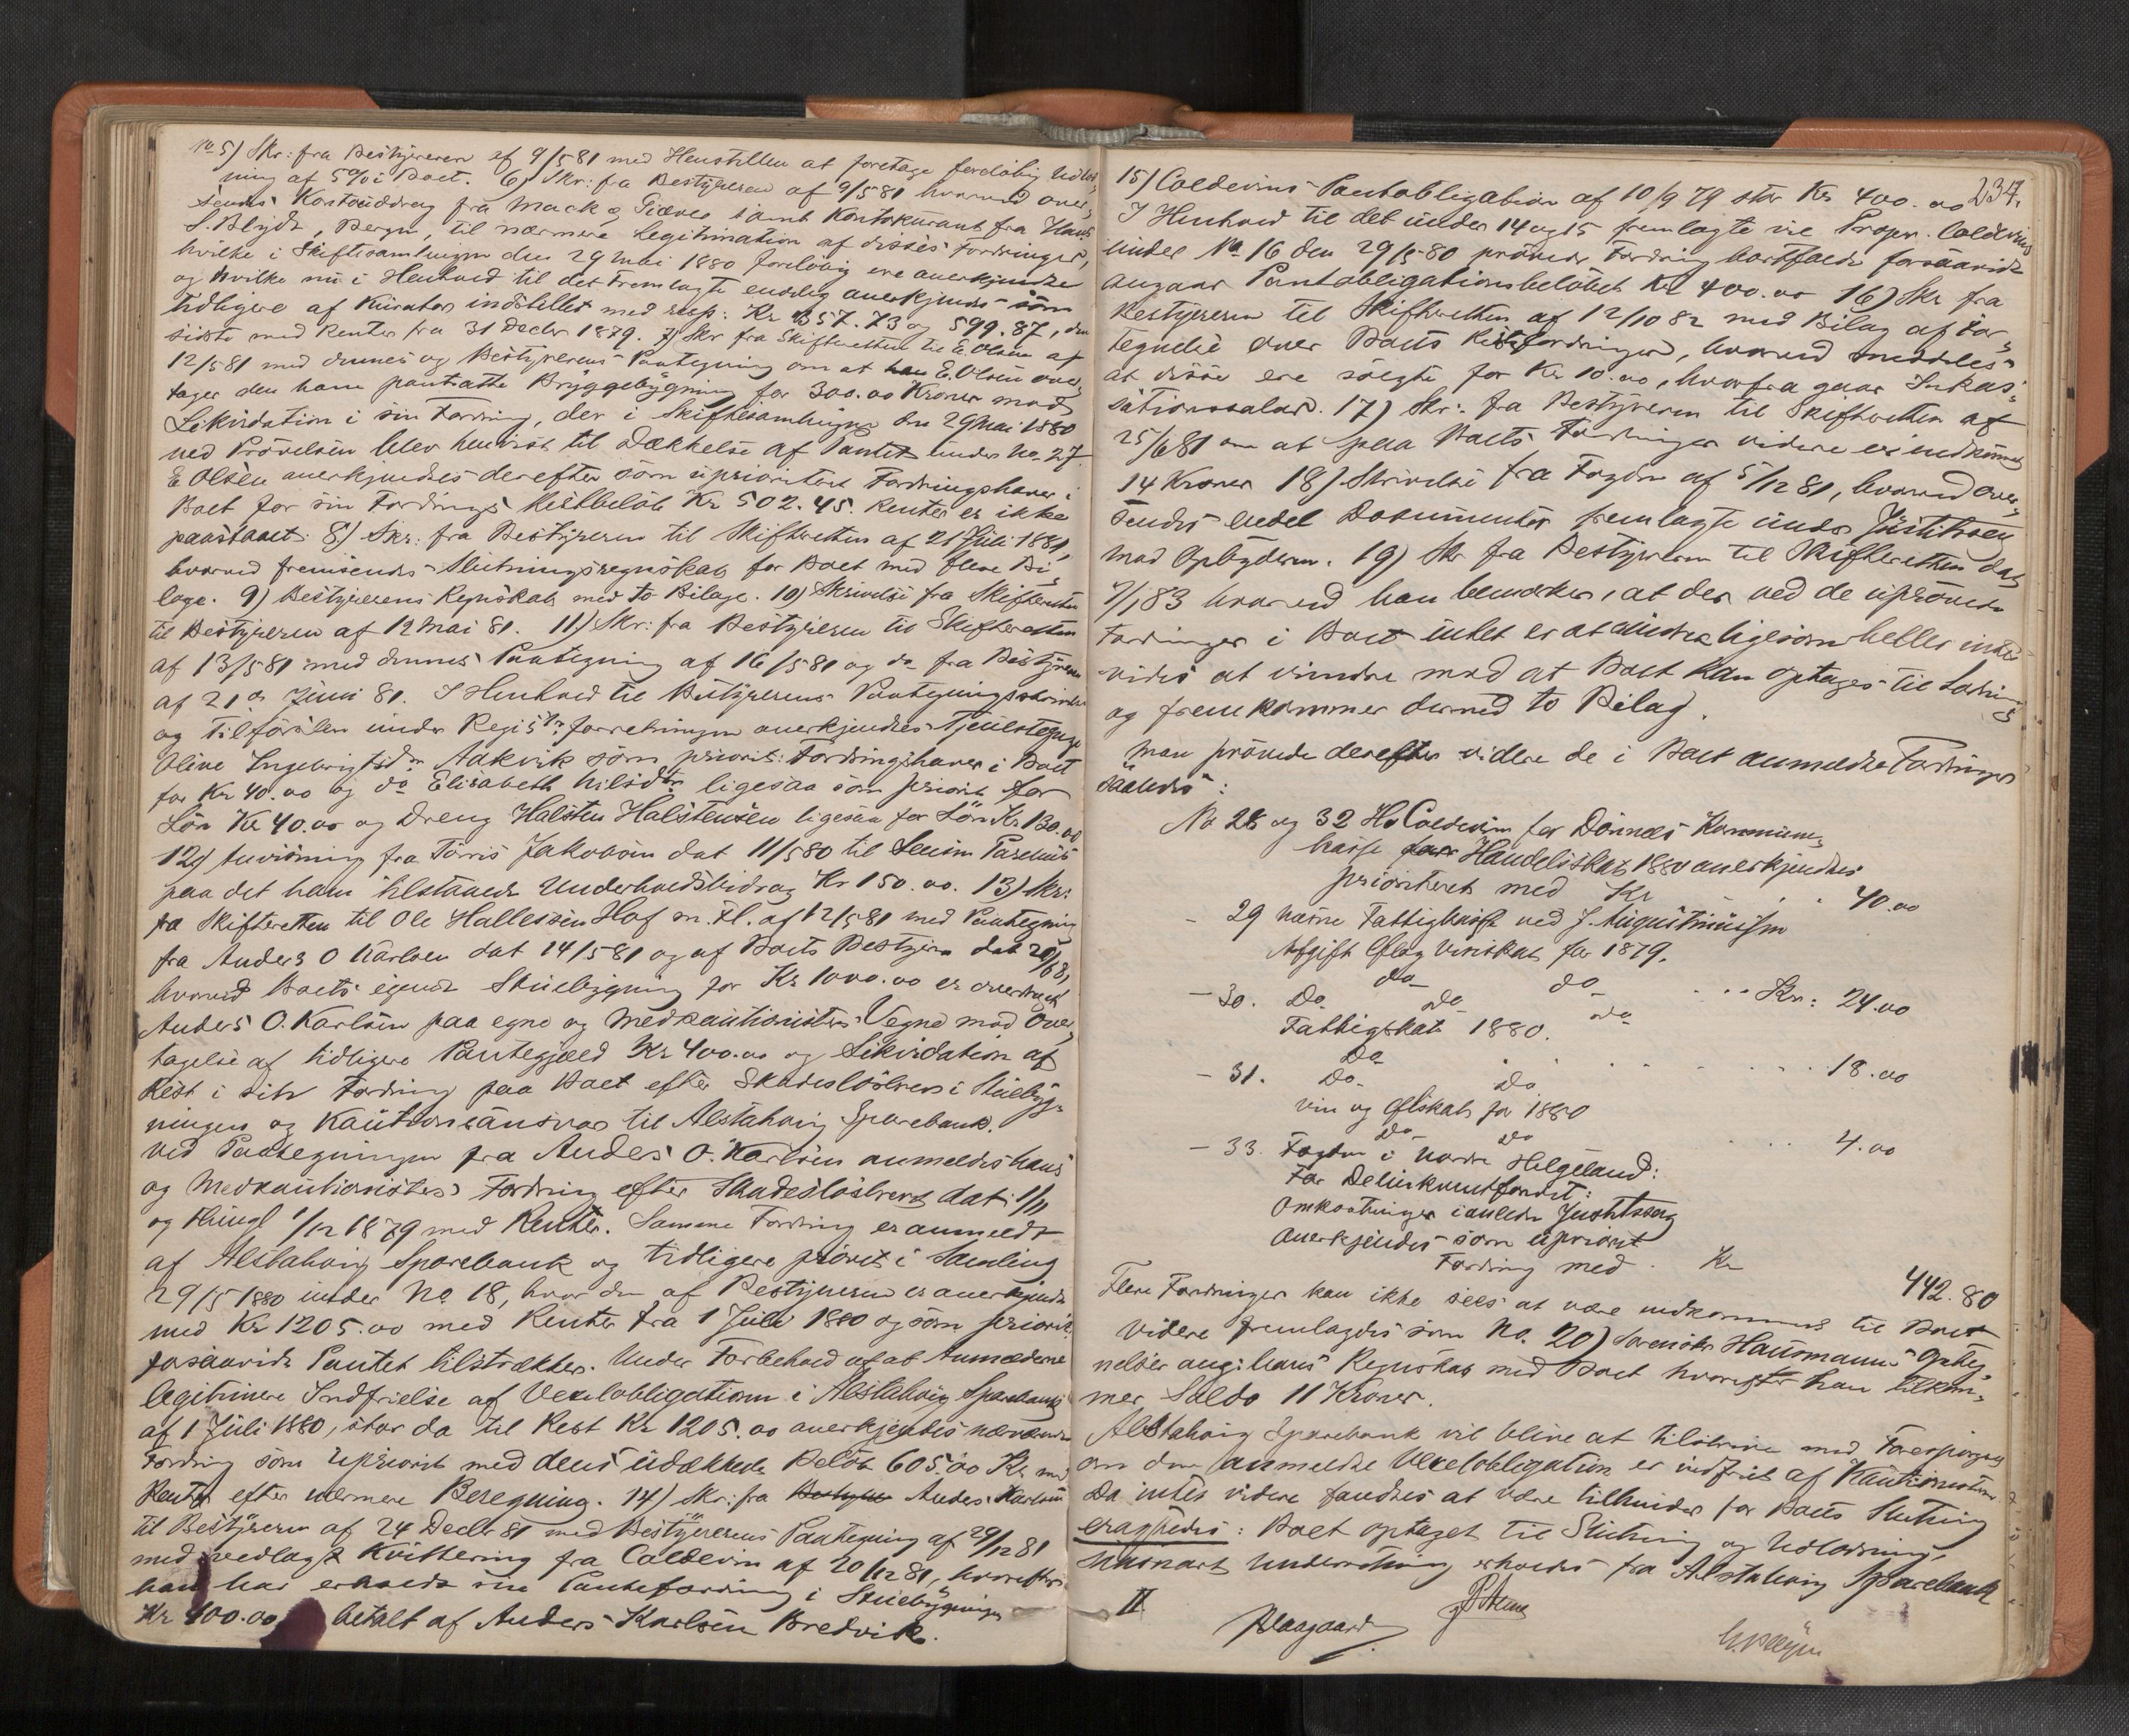 No 5) Skr: fra Bestyreren af 9/5 81 med Henstillen at foretage foreløbig Udlod-
ning af 5% i Boet. 6) Skr: fra Bestyreren af 9/5 81 hvorved over-
sendes Kontouddrag fra Mack & Giæver samt Kontokurant fra Hans
S. Blydt, Bergen, til nærmere Legitimation af disses Fordringer,
hvilke i Skiftesamlingen den 29 Mai 1880 foreløbig ere anerkjendte
og hvilke nu i Henhold til det Fremlagte endelig anerkjendes som
tidligere af Kurator indstillet med resp: Kr 357.73 og 599.87, den
sidste med Renter fra 31 Decbr 1879. 7) Skr fra Skifteretten til E. Olsen af
12/5 81 med dennes og Bestyrerens Paategning om at E. Olsen over-
tager den ham pantsatte Bryggebygning for 300.00 Kroner mod
Likvidation i sin Fordring, der i Skiftesamlingen den 29 Mai 1880
ved Prøvelsen blev henvist til Dækkelse af Pantet under No. 27.
E Olsen anerkjendes derefter som uprioritert Fordringshaver i
Boet for sin Fordrings Restbeløb Kr 502.45. Renter er ikke
paastaaet. 8) Skr: fra Bestyreren til Skifteretten af 21 Juli 1881,
hvorved fremsendes Slutningsregnskab for Boet med flere Bi-
lage. 9) Bestyrerens Regnskab med to Bilage. 10) Skrivelse fra Skifteretten
til Bestyreren af 12 Mai 81. 11) Skr: fra Bestyreren til Skifteretten
af 13/5 81 med dennes Paategning af 16/5 81 og do fra Bestyreren
af 21de Juni 81. I Henhold til Bestyrerens Paategningsskrivelse
og Tilførslen under Regist: forretningen anerkjendes Tjenestepige
Oline Ingebrigtsdr Aakvik som priorit: Fordringshaver i Boet
for Kr 40.00 og do Elisabeth Nilsdtr ligesaa som priorit for
Løn Kr 40.00 og Dreng Halsten Halstensen ligesaa for Løn Kr 130.00
12) Anvisning fra Tørris Jakobsen dat 11/5 80 til
paa det ham tilstaaede Underholdsbidrag Kr 150.00. 13) Skr:
fra Skifteretten til Ole Hallesen Hof m. Fl. af 12/5 81 med Paategning
fra Anders O Karlsen dat 14/5 81 og af Boets Bestyrer dat 20/6 81,
hvorved Boets eiende Stuebygning for Kr 1000.00 er overdraget
Anders O. Karlsen paa egne og Medkautionisters Vegne mod Over-
tagelse af tidligere Pantegjæld Kr 400.00 og Likvidation af
Rest i sin Fordring paa Boet efter Skadesløsbrev i Stuebyg-
ningen og Kautionsansvar til Alstahaug Sparebank.
Ved Paategningen fra Anders O. Karlsen anmeldes hans
og Medkautionisters Fordring efter Skadesløsbrev dat: 1/11
og thingl 1/12 1879 med Renter. Samme Fordring er anmeldt
af Alstahaug Sparebank og tidligere prøvet i Samling
29/5 1880 under No. 18, hvor den af Bestyreren er anerkjendt
med Kr 1205.00 med Renter fra 1 Juli 1880 og som priorit:
forsaavidt Pantet tilstrækker. Under Forbehold af at Anmelderne
legitimere Indfrielse af Vexelobligationen i Alstahaug Sparebank
af 1 Juli 1880, stor da til Rest Kr 1205.00 anerkjendtes nærværende
Fordring som upriorit med dens udækkede Beløb 605.00 Kr med
Renter efter nærmere Beregning. 14) Skr: fra Anders Karlsen
til Bestyreren af 24 Decbr 81 med Bestyrerens Paategning af 29/12 81
med vedlagt Kvittering fra Coldevin af 20/12 81, hvorefter
han har erholdt sin Pantefordring i Stuebygningen
Kr 400.00 betalt af Anders Karlsen Bredvik.
234.
15) Coldevins Pantobligation af 10/9 79 stor Kr 400.00
I Henhold til det under 14 og 15 fremlagte vil Propr. Coldevins
under No 16 den 29/5 80 prøvede Fordring bortfalde forsaavidt
angaar Pantobligationsbeløbet Kr 400.00 16) Skr fra
Bestyreren til Skifteretten af 12/10 82 med Bilag af For-
tegnelse over Boets Restfordringer, hvorved meddeles
at disse ere solgte for Kr 10.00, hvorfra gaar Inkas-
sationssalær. 17) Skr: fra Bestyreren til Skifteretten af
25/6 81 om at paa Boets Fordringer videre er indkommet
14 Kroner 18) Skrivelse fra Fogden af 5/12 81, hvorved over-
sendes endel Dokumenter fremlagte under Justitssag
mod Opbyderen. 19) Skr fra Bestyreren til Skifteretten dat
7/1 83 hvorved han bemærker, at der ved de uprøvede
Fordringer i Boet intet er at erindre ligesom heller intet
vides at erindre mod at Boet kan optages til Lodning
og fremkommer dermed to Bilag.
Man prøvede derefter videre de i Boet anmeldte Fordringer
saaledes:
No 28 og 32 H. Coldevin for Dønnæs Kommune-
kasse Handelsskat 1880 anerkjendes
prioriteret med Kr . . 40.00
- 29 Næsne Fattigkasse ved J. Augustinussen
Afgift Øl og Vinskat for 1879.
do do . . Kr: 24.00
- 30. Do do do
Fattigskat 1880.
Do . . . . 18.00
- 31. Do. Do
Vin og Ølskat for 1880
do do . . . 4.00
- 33. Fogden i Nordre Helgeland:
For Delinkventfondet:
Omkostninger i anledn Justitssag
Anerkjendes som upriorit
Fordring med . Kr 442.80
Flere Fordringer kan ikke sees at være indkommet til Boet
Videre fremlagdes som No. 20) Hausmanns Opteg-
nelser ang: hans Regnskab med Boet hvorefter han tilkom-
mer Saldo 11 Kroner.
Alstahaug Sparebank vil blive at tilskrive med Forespørgsel
om den anmeldte Vexelobligation er indfriet af Kautionisterne
Da intet videre fandtes at være tilhinder for Boets Slutning
eragtedes: Boet optaget til Slutning og Udlodning,
saasnart Underretning erholdes fra Alstahaug Sparebank
II